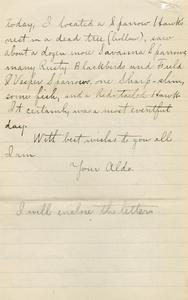 today, I located a Sparrow Hawks
nest in a dead tree (hollow), saw
about a dozen more Savanna Sparrows,
many Rusty Blackbirds and Field
& Vesper Sparrows, one Sharp-shin,
some fish, and a Red-tailed Hawk.
It certainly was a most eventful
day.
With best wishes to you all
I am
Your Aldo.
I will enclose the letters.